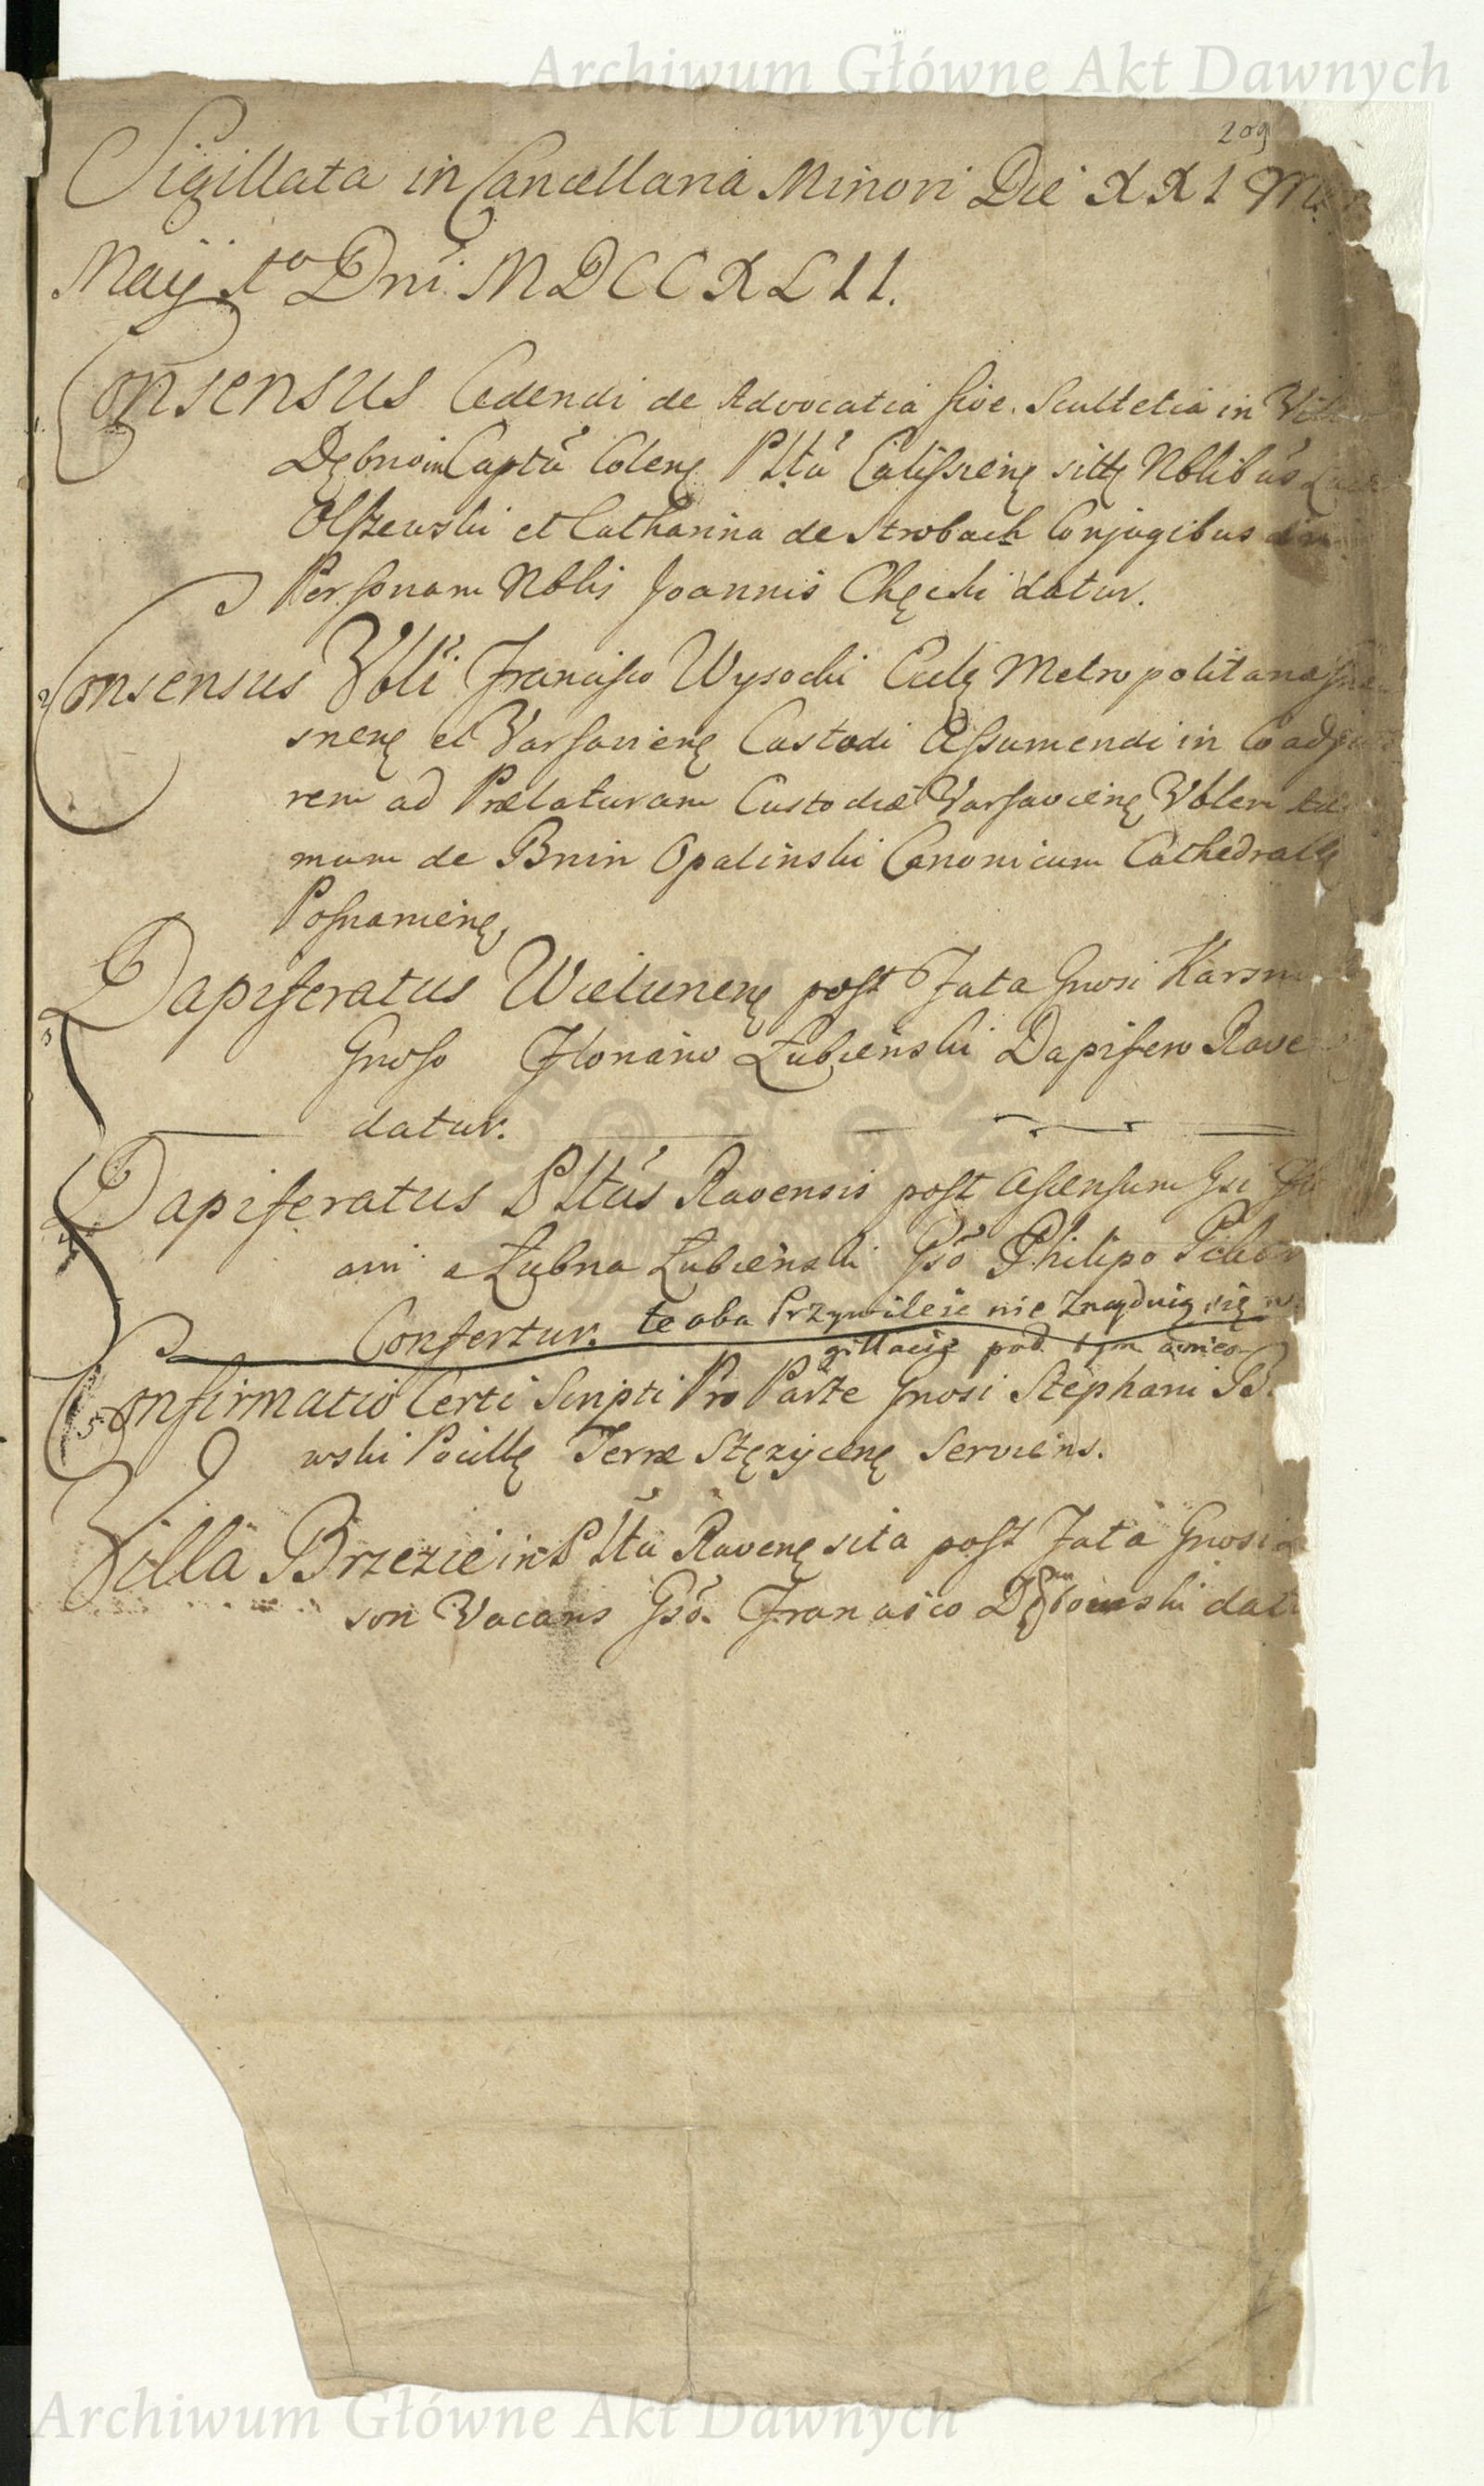 Archiwum Główne Akt Dawnych
209
Sigillata in Cancellaria Minori Die XXI
Maij Ao Dni MDCCXLII.
1. Consensus Cedendi de Advocatia sive Scultetia in
Dębno in Captũ Colenę Pltũ Calissienę sittę Nblibús
Olszewski et Catharina de Strobach Conjugibus
Personam Nblis Joannis Chęcki datur.
2 Consensus Vbli Francisco Wysocki Eccle Metropolitanæ
snenę et Varsavienę Custodi Assumendi in
rem ad Prælaturam Custodiæ Varsavienę Vblem
mum de Bnin Opalinski Canonicum Cathedralę
Posnanienę,
3 Dapiferatus Wielunenę post Fata Gnosi
Gnoso Floriano Łubieński Dapifero
datur.
4 Dapiferatus Pltús Ravensis post Ascensum Gsi
ani a Łubna Łubieński Gsô Philipo
Confertur. te oba Przywileie nie znayduią się
gillacie pod tym
5 Confirmatio Certi Scripti Pro Parte Gnosi Stephani
wski Pocillę Terræ Stężycenę Serviens.
Villa Brzezie in Pltũ Ravenę sita post Fata Gnosi
son Vacans Gsô. Francisco
Archiwum Główne Akt Dawnych